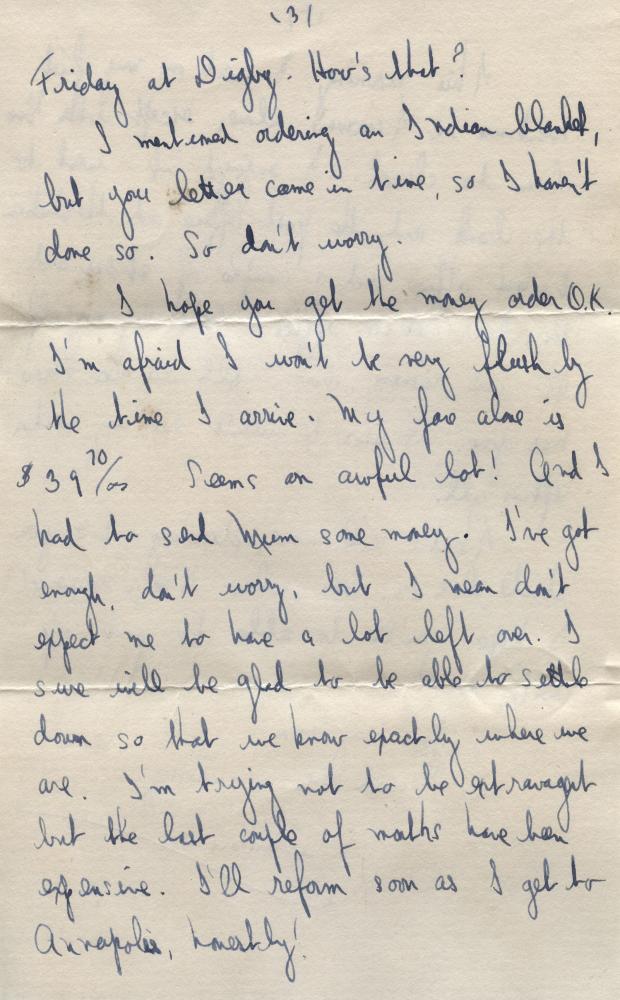 (3)
Friday at Digby. How's that?
I mentioned ordering an Indian blanket,
but you letter came in time, so I haven't
done so. So don't worry.
I hope you get the money order O.K.
I'm afraid I won't be very flush by
the time I arrive. My fare alone is
$39 70/00 Seems an awful lot! And I
had to send Mum some money. I've got
enough, don't worry, but I mean don't
expect me to have a lot left over. I
sure will be glad to be able to settle
down so that we know exactly where we
are. I'm trying not to be extravagt
but the last couple of months have been
expensive. I'll reform soon as I get to
Annapolis, honestly!